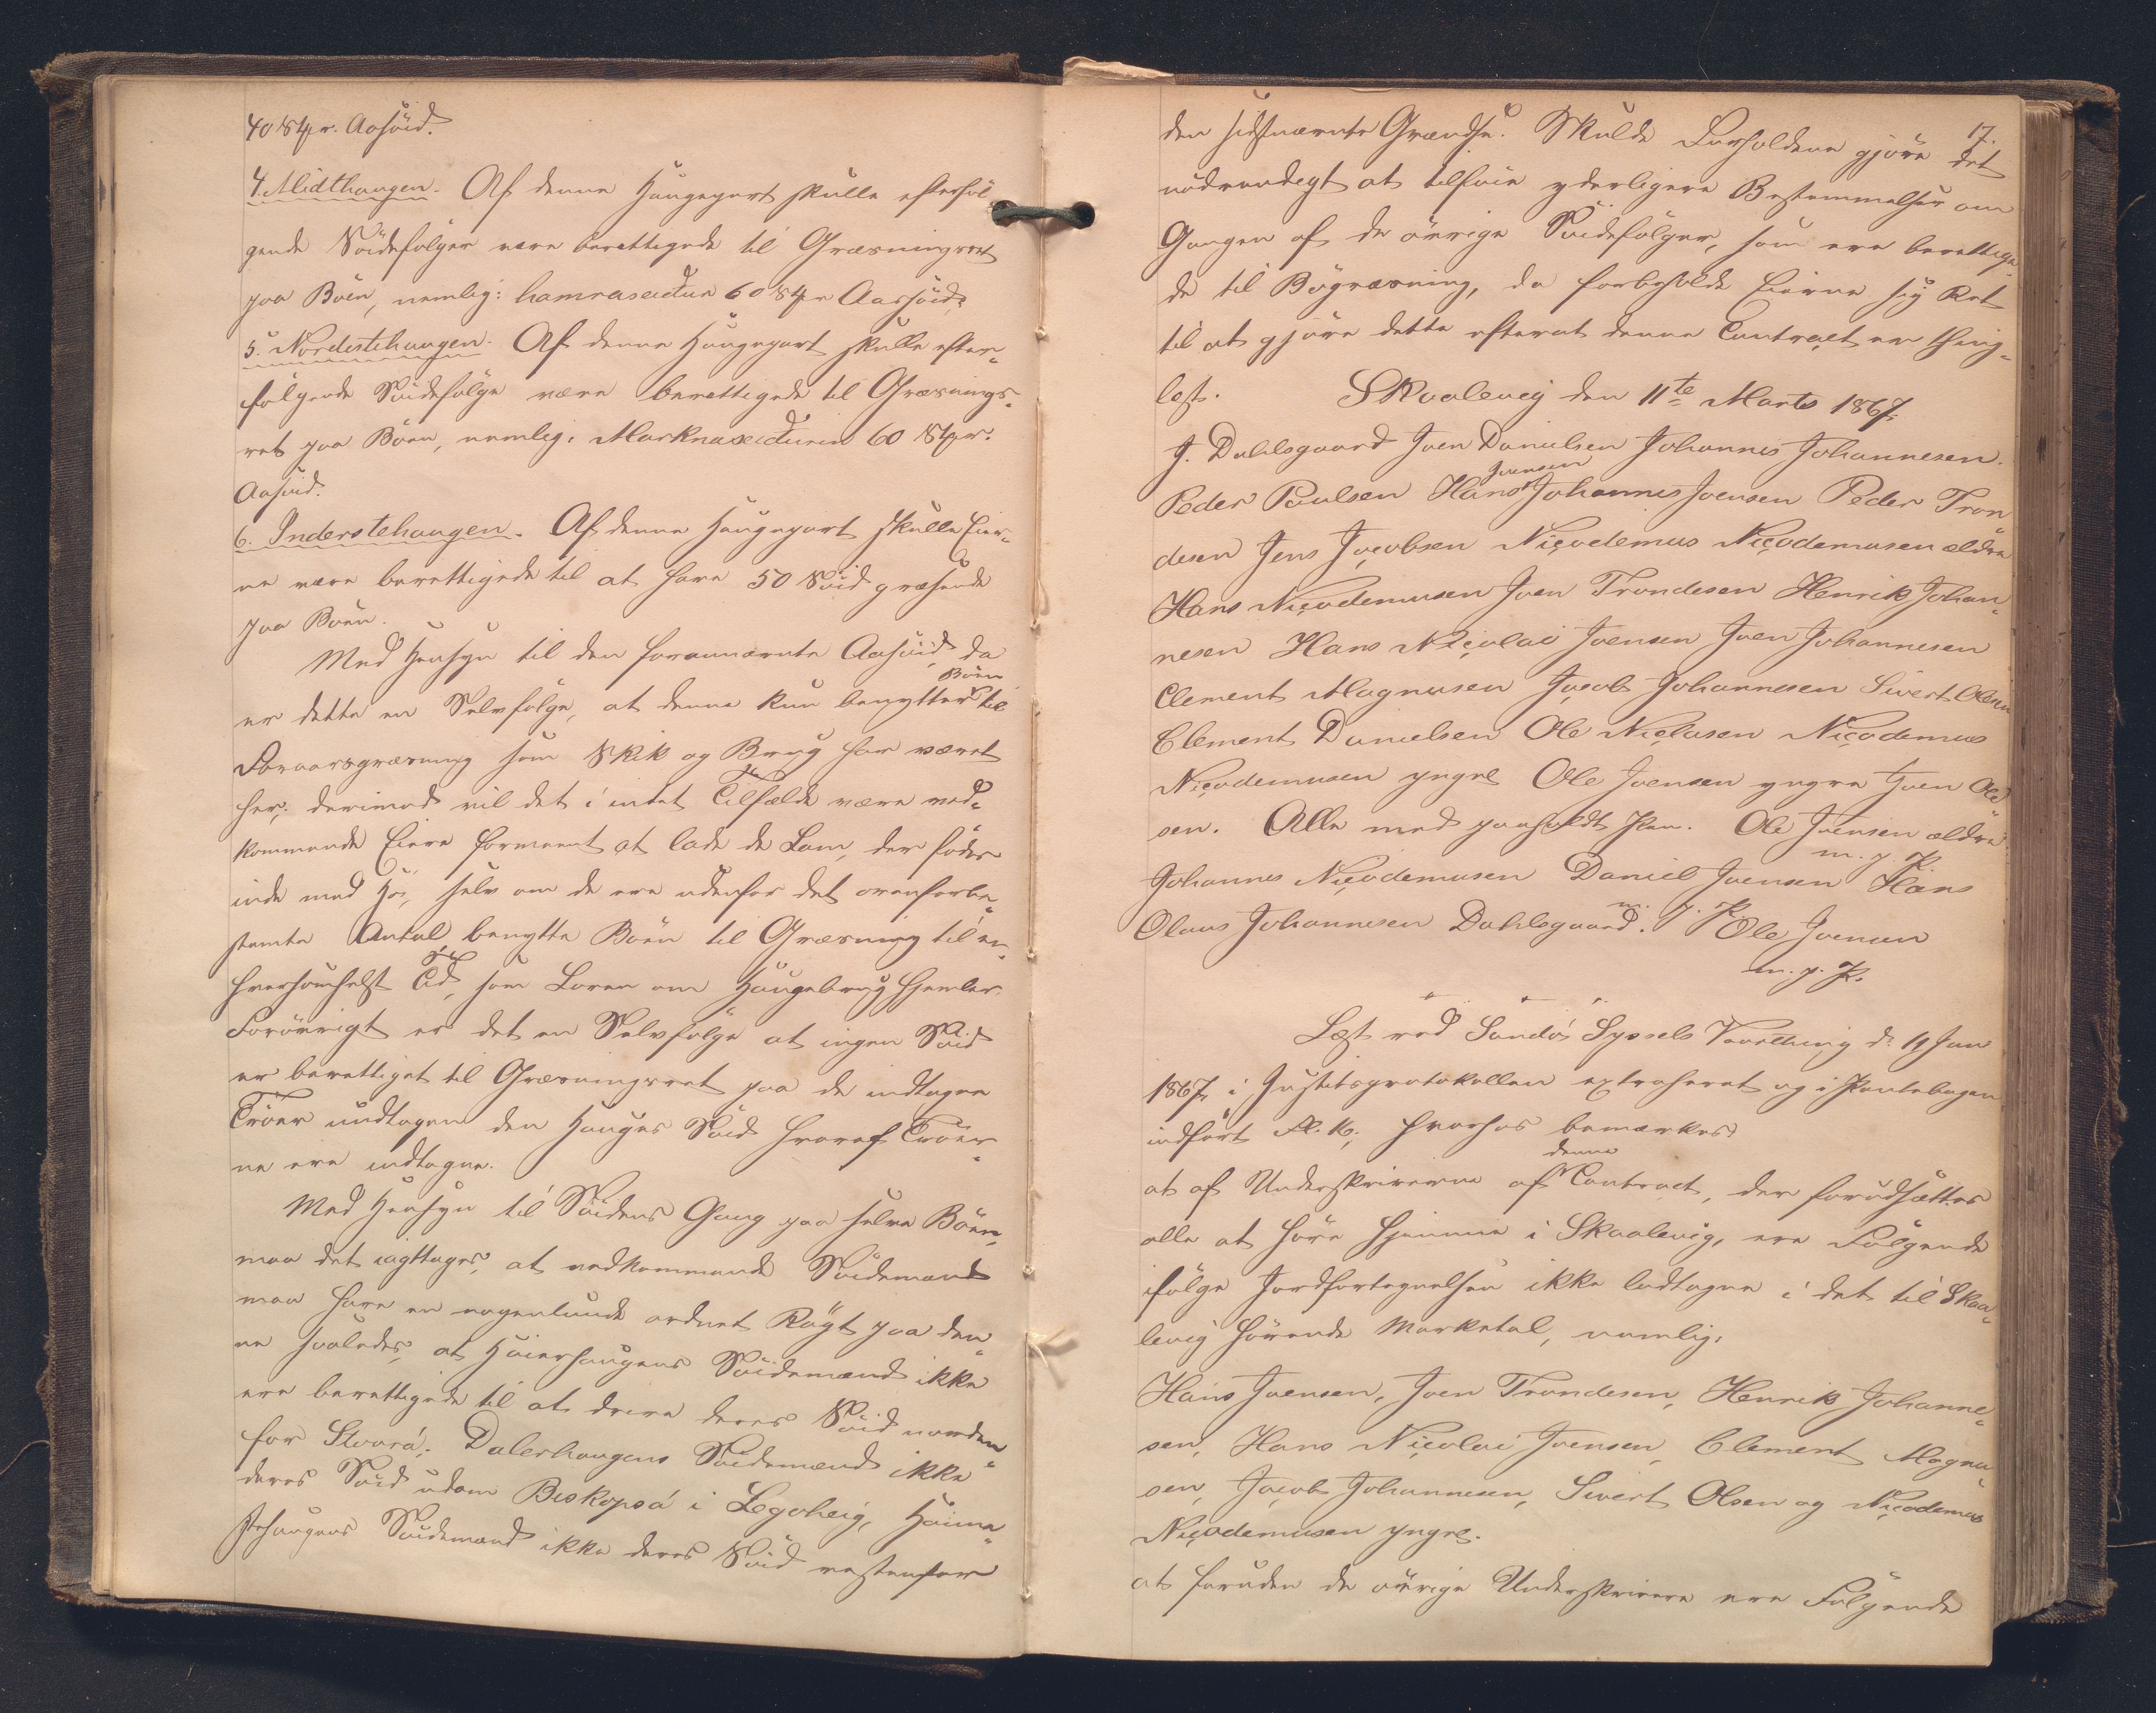 40 Stkr. Aasöid.
4. Midthaugen. Af denne Haugepart skulle efterføl-
gende Söidefølger være berettigede til Græsningsret
paa Böen, nemlig: hamraseidur 60 Stkr Aarsöid;
5. Nordestehaugen. Af denne Haugepart skulle efter-
følgende Söidefølge være berettigede til Græsnings-
ret paa Böen, nemlig: Marknaseidurin 60 Stkr.
Aasöid.
6. Inderstehaugen. Af denne Haugepart skulle Eier-
ne være berettigede til at have 50 Söid græsende
paa Böen.
Med Hensyn til den forannævnte Aasöid, da
er dette en Selvfølge, at denne kun benytter Böen til
Foraarsgræsning som Skik og Brug har været
her; derimod vil det i intet Tilfælde være ved-
kommende Eiere formeent at lade de Lam, der födes
inde med Hö, selv om de ere udenfor det ovenforbe-
stemte Antal, benytte Böen til Græsning til en-
hversomhelst Tid, som Loven om Haugebrug hjemler.
Forövrigt er det en Selvfølge at ingen Söid
er berettiget til Græsningsret paa de indtagne
Tröer undtagen den Hauges Söid hvoraf Tröer-
ne ere indtagne.
Med Hensyn til Söidens Gang paa selve Böen,
maa det iagttages, at vedkommende Söidemænd
maa have en nogenlunde ordnet Rögt paa den-
ne saaledes, at Høiershaugens Söidemænd ikke
ere berettigede til at drive deres Söid norden-
for Stoorá; Dalerhaugens Söidemænd ikke
deres Söid udom Beskopsá i Legoheig,
Söidemænd ikke deres Söid vestenfor
17.
den sidstnævnte Grændse. Skulde Forholdene gjöre det
nödvendigt at tilföie yderligere Bestemmelser om
Gangen af de övrige Söidefølger, som ere berettige-
de til Bögræsning, da forbeholde Eierne sig Ret
til at gjöre dette efterat denne Contract er thing-
lest. Skaalevig den 11te Marts 1867.
J. Dahlsgaard Joen Danielsen Johannis Johannesen.
Peder Poulsen Hans Joensen Johannis Joensen Peder Tron-
desen Jens Jacobsen Nicodemus Nicodemusen ældre
Hans Nicodemusen Joen Trondesen Henrik Johan-
nesen Hans Nicolai Joensen Joen Johannesen
Clement Magnusen Jacob Johannesen Sivert Olsen
Clement Danielsen Ole Niclasen Nicodemus
Nicodemusen yngre Ole Joensen yngre Joen Ole-
sen. Alle med paaholdt Pen. Ole Joensen ældre
m. p. P.
Johannes Nicodemusen Daniel Joensen Hans
m. p. P.
Olaus Johannesen Dahlsgaard. Ole Joensen
m. p. P.
Læst ved Sandö Syssels Vaarthing d. 19 Juni
1867, i Justitsprotokollen extraheret og i Pantebogen
indført Fl. 16; hvorhos bemærkes
at af Underskriverne af denne Contract, der forudsættes
alle at höre hjemme i Skaalevig, ere Følgende
ifølge Jordfortegnelsen ikke ladtagne i det til Skaa-
levig hörende Marketal, nemlig:
Hans Joensen, Joen Trondesen, Henrik Johanne-
sen, Hans Nicolai Joensen, Clement Magnu-
sen, Jacob Johannesen, Sivert Olsen og Nicodemus
Nicodemusen yngre.
at foruden de övrige Underskrivere ere Følgende